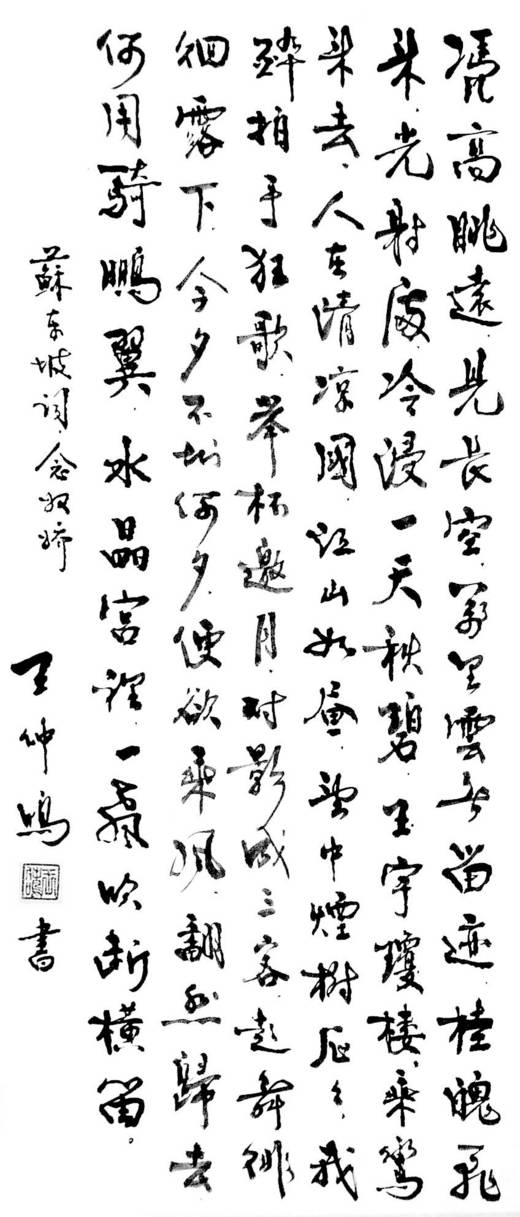 凴高眺遠,見長空,萬里雲無留迹.桂魄飛
来,光射處,冷浸一天秋碧.玉宇瓊楼,乘鸞
来去,人在清凉國.江山如畫,望中煙樹歷々,我
醉拍手狂歌,举杯邀月,对影成三客,起舞徘
徊露下,今夕不知何夕,便欲乘风,翻然歸去
何用騎鵬翼,水晶宫裡,一聲吹断橫笛。
蘇东坡词,念奴娇
王仲鳴書